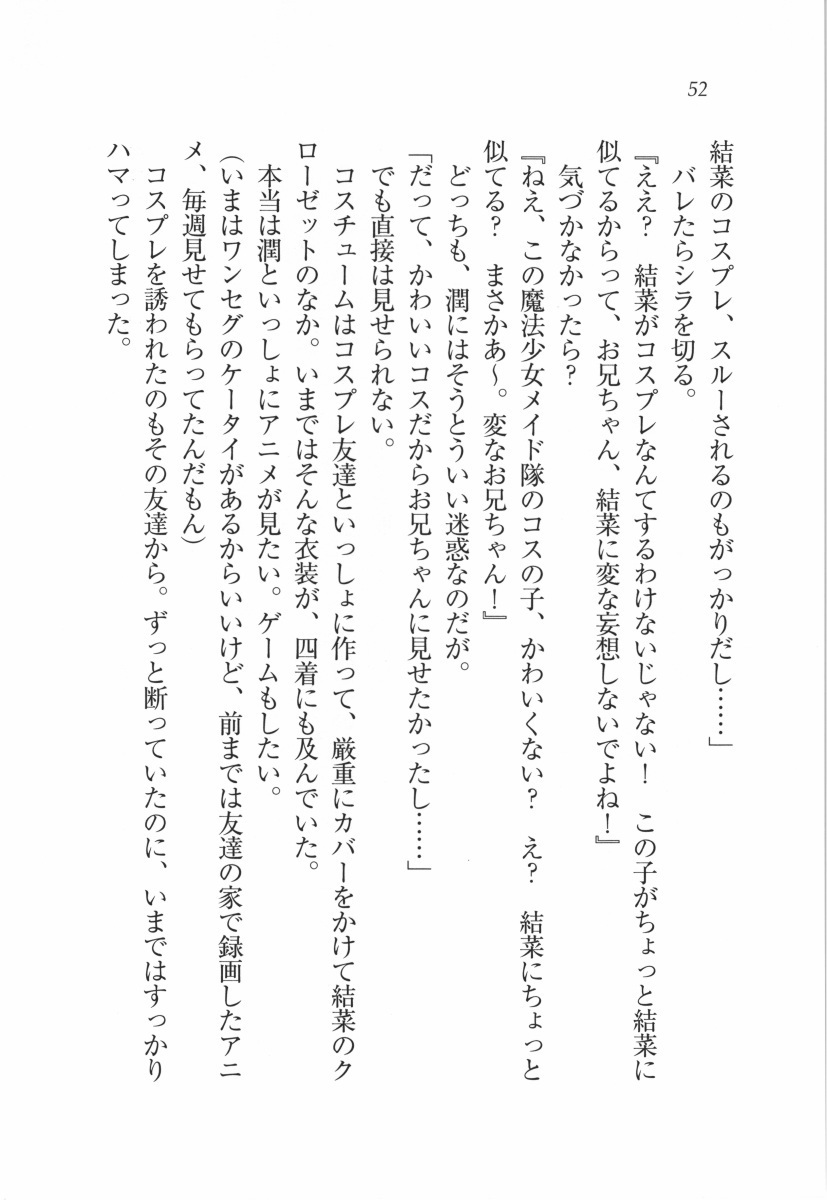 52
結菜のコスプレ、スルーされるのもがっかりだし……」
　バレたらシラを切る。
『ええ？　結菜がコスプレなんてするわけないじゃない！　この子がちょっと結菜に
似てるからって、お兄ちゃん、結菜に変な妄想しないでよね！』
　気づかなかったら？
『ねえ、この魔法少女メイド隊のコスの子、かわいくない？　え？　結菜にちょっと
似てる？　まさかあ〜。変なお兄ちゃん！』
　どっちも、潤にはそうとういい迷惑なのだが。
「だって、かわいいコスだからお兄ちゃんに見せたかったし……」
　でも直接は見せられない。
　コスチュームはコスプレ友達といっしょに作って、厳重にカバーをかけて結菜のク
ローゼットのなか。いまではそんな衣装が、四着にも及んでいた。
　本当は潤といっしょにアニメが見たい。ゲームもしたい。
（いまはワンセグのケータイがあるからいいけど、前までは友達の家で録画したアニ
メ、毎週見せてもらってたんだもん）
　コスプレを誘われたのもその友達から。ずっと断っていたのに、いまではすっかり
ハマってしまった。